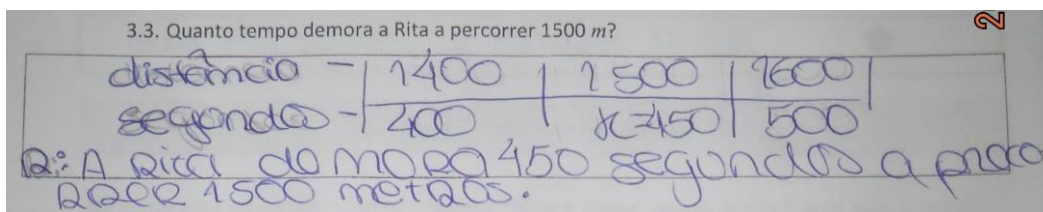 2
3.3. Quanto tempo demora a Rita a percorrer 1500 m?
distância - | 1400 | 1500 | 1600 |
segundos - | 400 | x=450 | 500
R: A Rita demora 450 segundos a perco
rrer 1500 metros.